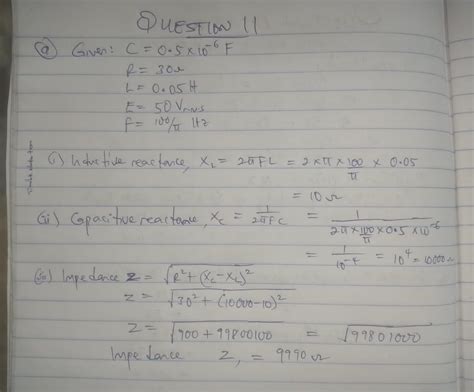 QUESTION 11
(a) Given: C = 0.5 x 10^-6 F
R = 30Ω
L = 0.05 H
E = 50 Vrms
F = 100/π Hz
(i) Inductive reactance, XL = 2πFL = 2 x π x 100/π x 0.05
= 10 Ω
(ii) Capacitive reactance, Xc = 1/2πFC = 1/2π x 100/π x 0.5 x 10^-6
= 1/10^-4 = 10^4 = 10000 Ω
Impedance Z = √R² + (Xc - XL)²
Z = √30² + (10000 - 10)²
Z = √900 + 99800100 = √99801000
Impedance Z, = 9990 Ω